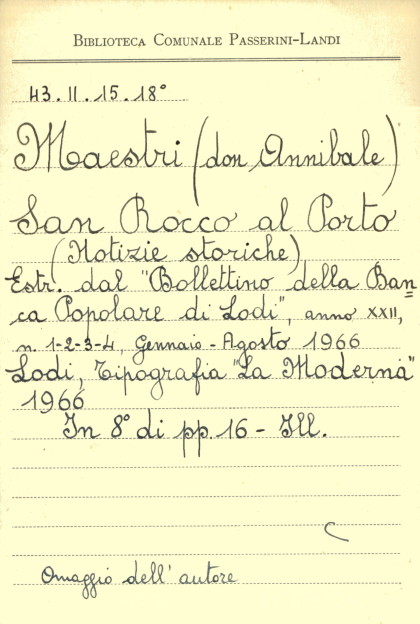 BIBLIOTECA COMUNALE PASSERINI-LANDI
43.II.15.18°
Maestri (don Annibale)
San Rocco al Porto
(Notizie storiche)
Estr. dal "Bollettino della Ban
ca Popolare di Lodi", anno XXII,
n. 1-2-3-4, Gennaio - Agosto 1966
Lodi, Tipografia "La Moderna"
1966
In 8° di pp. 16 - Ill.
C
Omaggio dell'autore